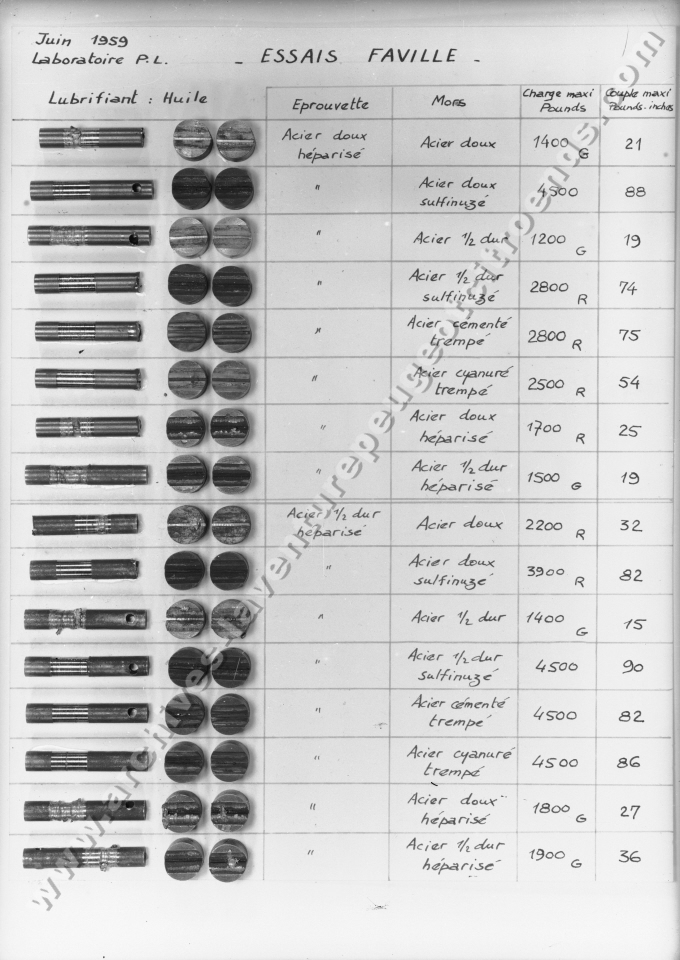 Juin 1959
Laboratoire P.L.
- ESSAIS FAVILLE -
Lubrifiant : Huile
Eprouvette
Mors
Charge maxi
Pounds
Couple maxi
Pounds-inches
Acier doux
héparisé
Acier doux
1400 G
21
"
Acier doux
sulfinuzé
4500
88
"
Acier 1/2 dur
1200 G
19
"
Acier 1/2 dur
sulfinuzé
2800 R
74
"
Acier cementé
trempé
2800 R
75
"
Acier cyanuré
trempé
2500 R
54
"
Acier doux
héparisé
1700 R
25
"
Acier 1/2 dur
héparisé
1500 G
19
Acier 1/2 dur
héparisé
Acier doux
2200 R
32
"
Acier doux
sulfinuzé
3900 R
82
"
Acier 1/2 dur
1400 G
15
"
Acier 1/2 dur
sulfinuzé
4500
90
"
Acier cémenté
trempé
4500
82
"
Acier cyanuré
trempé
4500
86
"
Acier doux
héparisé
1800 G
27
"
Acier 1/2 dur
héparisé
1900 G
36
www.archives.laventurepeugeotcitroends.com